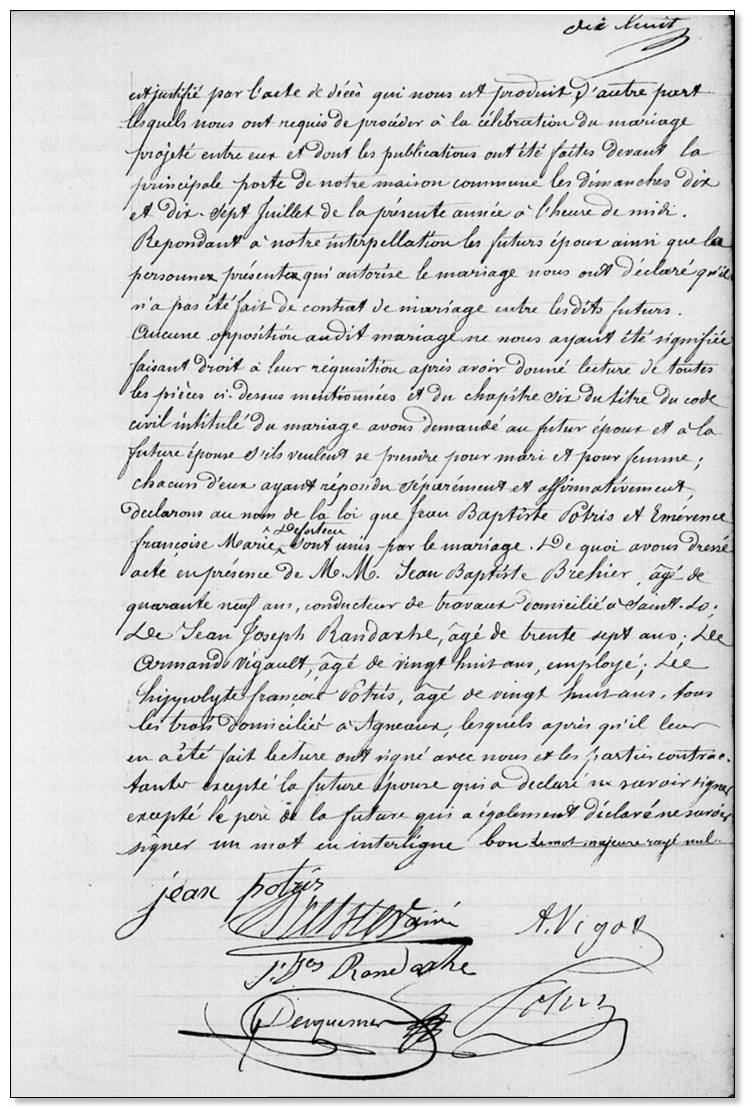 dix huit
est justifié par l'acte de décès qui nous est produit, d'autre part
lesquels nous ont requis de procéder à la célébration du mariage
projeté entre eux et dont les publications ont été faites devant la
principale porte de notre maison commune les dimanches dix
et dix-sept Juillet de la présente année à l'heure de midi.
Repondant à notre interpellation les futurs époux ainsi que la
personnex présentex qui autorise le mariage nous ont déclaré qu'il
n'a pas été fait de contrat de mariage entre lesdits futurs.
Aucune opposition audit mariage ne nous ayant été signifiée
faisant droit à leur réquisition après avoir donné lecture de toutes
les pièces ci-dessus mentionnées et du chapitre six du titre du code
civil intitulé du mariage avons demandé au futur époux et à la
future épouse s'ils veulent se prendre pour mari et pour femme;
chacun d'eux ayant répondu séparément et affirmativement,
declarons au nom de la loi que Jean Baptiste Potris et Emérence
françoise Marie sont unis par le mariage. De quoi avons dressé
acte en présence de M.M. Jean Baptiste Brehier, âgé de
quarante neuf ans, conducteur de travaux domicilié à Saint-Lo;
De Jean Joseph Randaxhe, âgé de trente sept ans; De
Armand Vigault, âgé de vingt huit ans, employé; De
hippolyte françois Potris, âgé de vingt huit ans, tous
les trois domiciliés à Agneaux, lesquels après qu'il leur
en a été fait lecture ont signé avec nous et les parties contrac-
tantes excepté la future épouse qui a declaré ne savoir signer
excepté le père de la future qui a également déclaré ne savoir
signer un mot en interligne bon le mot majeure rayé nul.
jean potris
A. Vigot
J. Jos Randaxhe